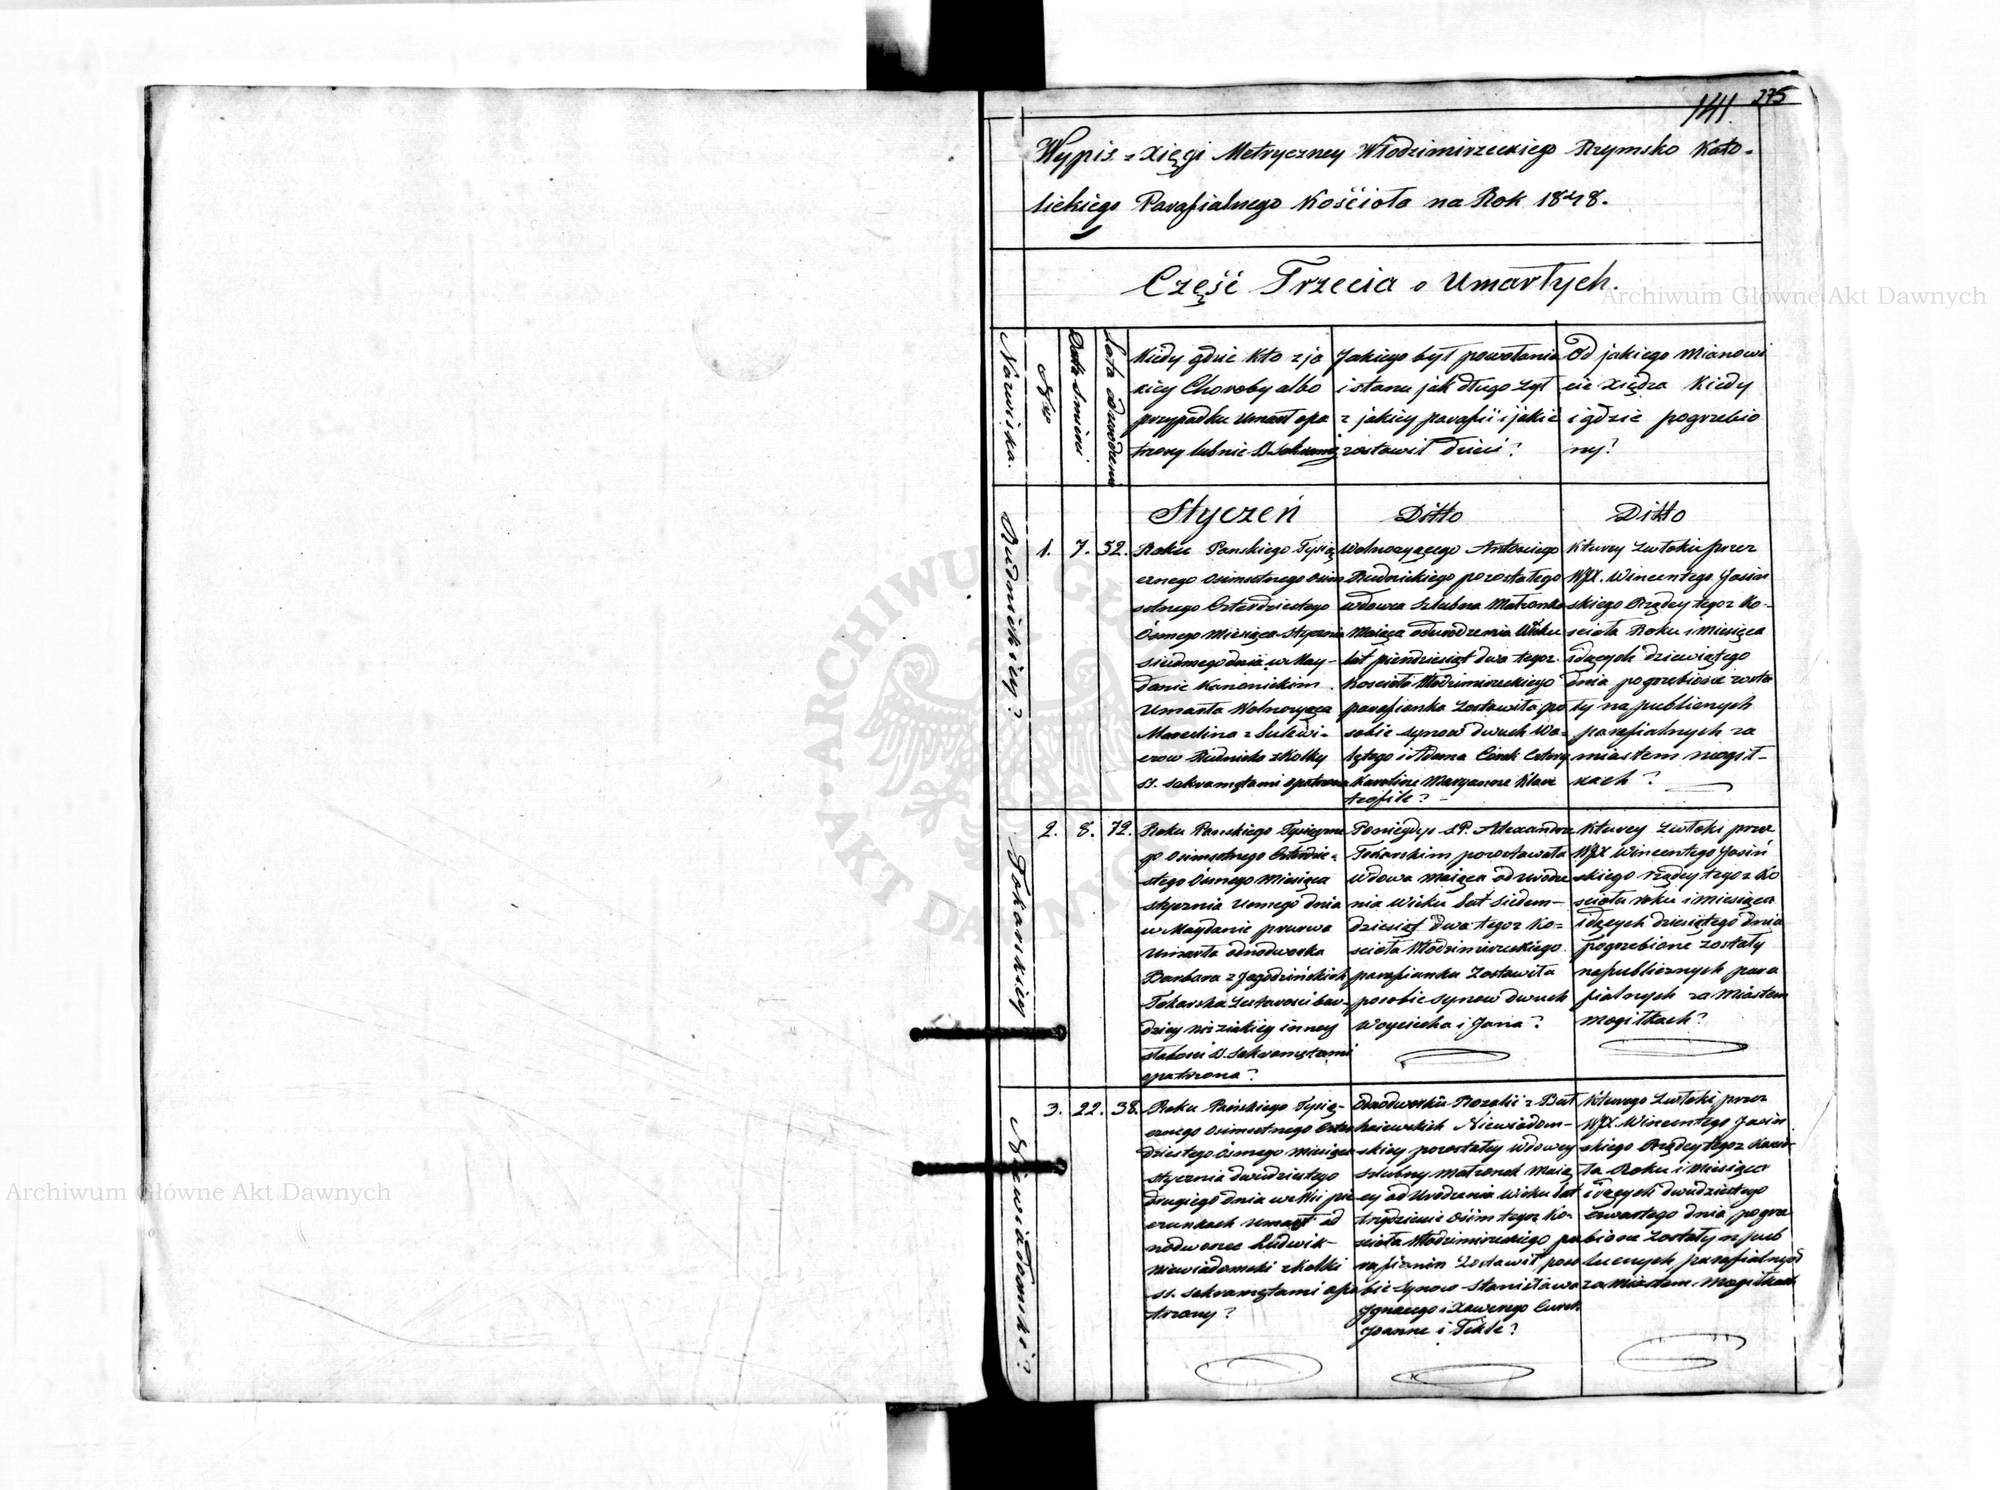 275
141.
Wypis z Xięgi Metryczney Włodzimirzeckiego Rzymsko Kato-
lickiego Parafialnego Kościoła na Rok 1848.
Część Trzecia o Umarłych.
Nazwiska.
Nro
Data Śmierci
Lata Urodzenia
Kiedy gdzie kto z ja
kiey Choroby albo
przypadku Umarł opa
trzony lub nie S. Sakramę
Jakiego był powołania
i stanu jak długo żył
z jakiey parafii i jakie
zostawił dzieci?
Od jakiego Mianowi
cie xiędza Kiedy
i gdzie pogrzebio
ny?
Styczeń
Ditto
Ditto
Rudnickiey?
1. 7. 52.
Roku Pańskiego Tysią
cznego Osimsetnego Osim
setnego Czterdziestego
Ósmego Miesiąca Stycznia
siudmego dnia w May-
danie Kanonickim
Umarła Wolnorząca
Marcelina z Sulewi-
czow Rudnicka z Kolky
SS. Sakramętami opatrzona
Wolnorzącego Antoniego
Rudnickiego pozostałego
wdowca Szlubna Małżonka
Maiąca od urodzenia Wieku
lat piendziesiąt dwa tegoz
Kościoła Włodzimirzeckiego
parafianka Zostawiła po
sobie synow dwuch Wa-
lętego i Adama Córek Cztery
Karoline Maryanne Klare
teofile?
Kturey Zwłoki przez
WJX. Wincentego Jasiń
skiego Rządcy tegoz Ko-
scioła Roku i Miesiąca
idących dziewiątego
dnia pogrzebione zosta
ły na publicznych
parafialnych za
miastem mogił-
kach?
Tokarskiey
2. 8. 72.
Roku Pańskiego Tysięczne
go Osimsetnego Czterdzie-
stego Ósmego Miesiąca
stycznia usmego dnia
w Maydanie
Umarła odnodworka
Barbara z Jagodzińskich
Tokarska Zestarosci bar-
dziey niz z iakiey inney
słabosci S. Sakramętami
opatrzona?
Poniegdys S.P. Alexandra
Tokarskim pozostawała
Wdowa maiąca od urodze
nia Wieku Lat siedem-
dziesiąt dwa tegoz Ko-
scioła Włodzimirzeckiego
parafianka Zostawiła
posobie synow dwuch
Woyciecha i Jana?
Kturey Zwłoki przez
WJX Wincentego Jasiń
skiego rządcy tegoz Ko
scioła roku i miesiąca
idących dziesiątego dnia
pogrzebione zostały
na publicznych para
fialnych za Miastem
mogiłkach?
Niewiadomski?
3. 22. 38.
Roku Pańskiego Tysią-
cznego Osimsetnego Czter
dziestego Ósmego Miesiąca
Stycznia dwudziestego
drugiego dnia we Wsi
Umarł od
nodworzec Ludwik
Niewiadomski z kolki
SS. Sakramętami opa
trzony?
Odnodworki Rozalii z
Niewiadom-
skiey pozostały wdowey
Szlubny małżonek maią
cy od Urodzenia Wieku lat
trzydziescie Osim tegoz Ko-
scioła Włodzimirzeckiego pa
rafianin Zostawił poso
bie Synow Stanisława
Ignacego i Xawerego Curek
Joanne i Tekle?
Kturego Zwłoki przez
WJX. Wincentego Jasiń
skiego Rządcy tegoz Koscio-
ła Roku i Miesiąca
idących dwudziestego
czwartego dnia pogrze
bione Zostały na pub
licznych parafialnych
za Miastem Mogiłkach
ARCHIWUM GŁÓWNE AKT DAWNYCH
Archiwum Główne Akt Dawnych
Archiwum Główne Akt Dawnych